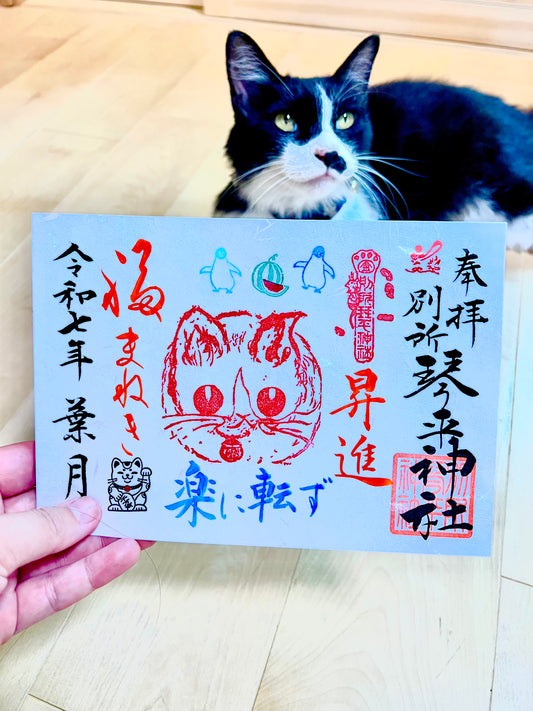 奉拝
別所琴平神社
昇進
福まねき
令和七年 葉月
楽に転ず